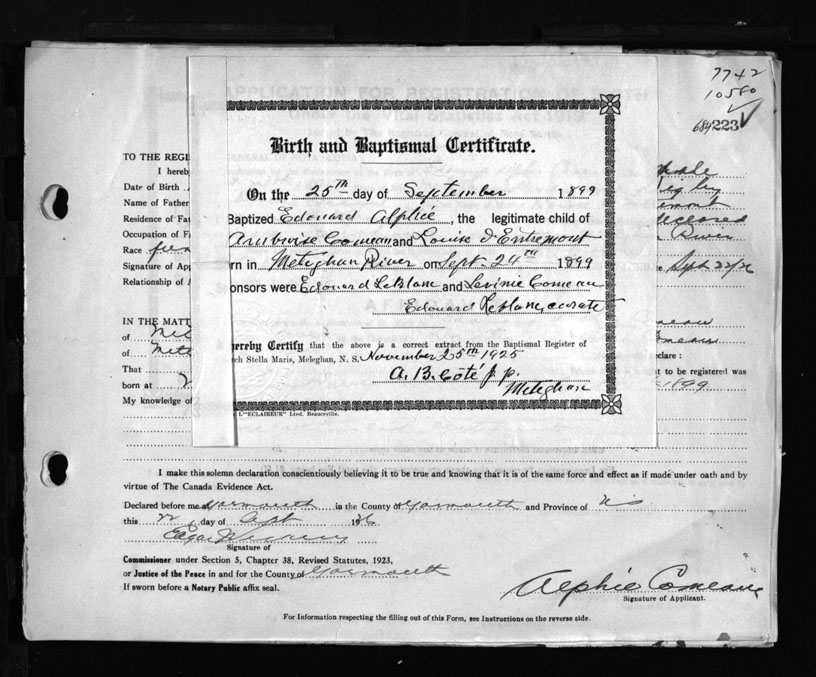 7742
10580
684223
TO THE REGI
I hereb
Date of Birth
Name of Father
Residence of Fat
Occupation of F
Race
Signature of App
Relationship of A
Birth and Baptismal Certificate.
On the 25TH day of September 1899
Baptized Edouard Alphié, the legitimate child of
Ambroise Comeau and Louise d'Entremont
rn in Meteghan River on Sept. 24TH 1899
onsors were Edouard LeBlanc and Levinie Comeau
Edouard LeBlanc, curate
hereby Certify that the above is a correct extract from the Baptismal Register of
rch Stella Maris, Meleghan, N. S. November 25th 1925
A. B. Côté p.p.
Meteghan
L'"ECLAIREUR" Lted. Beauceville.
declared
River
Sept 22/26
IN THE MATT
of Met
of Mete
That
born at
My knowledge of
Comeau
eclare :
t to be registered was
1899
I make this solemn declaration conscientiously believing it to be true and knowing that it is of the same force and effect as if made under oath and by
virtue of The Canada Evidence Act.
Declared before me at Yarmouth in the County of Yarmouth and Province of NS
this 22 day of Sept 1926
Edgar
Signature of
Commissioner under Section 5, Chapter 38, Revised Statutes, 1923,
or Justice of the Peace in and for the County of Yarmouth
If sworn before a Notary Public affix seal.
Alphie Comeau
Signature of Applicant.
For Information respecting the filling out of this Form, see Instructions on the reverse side.